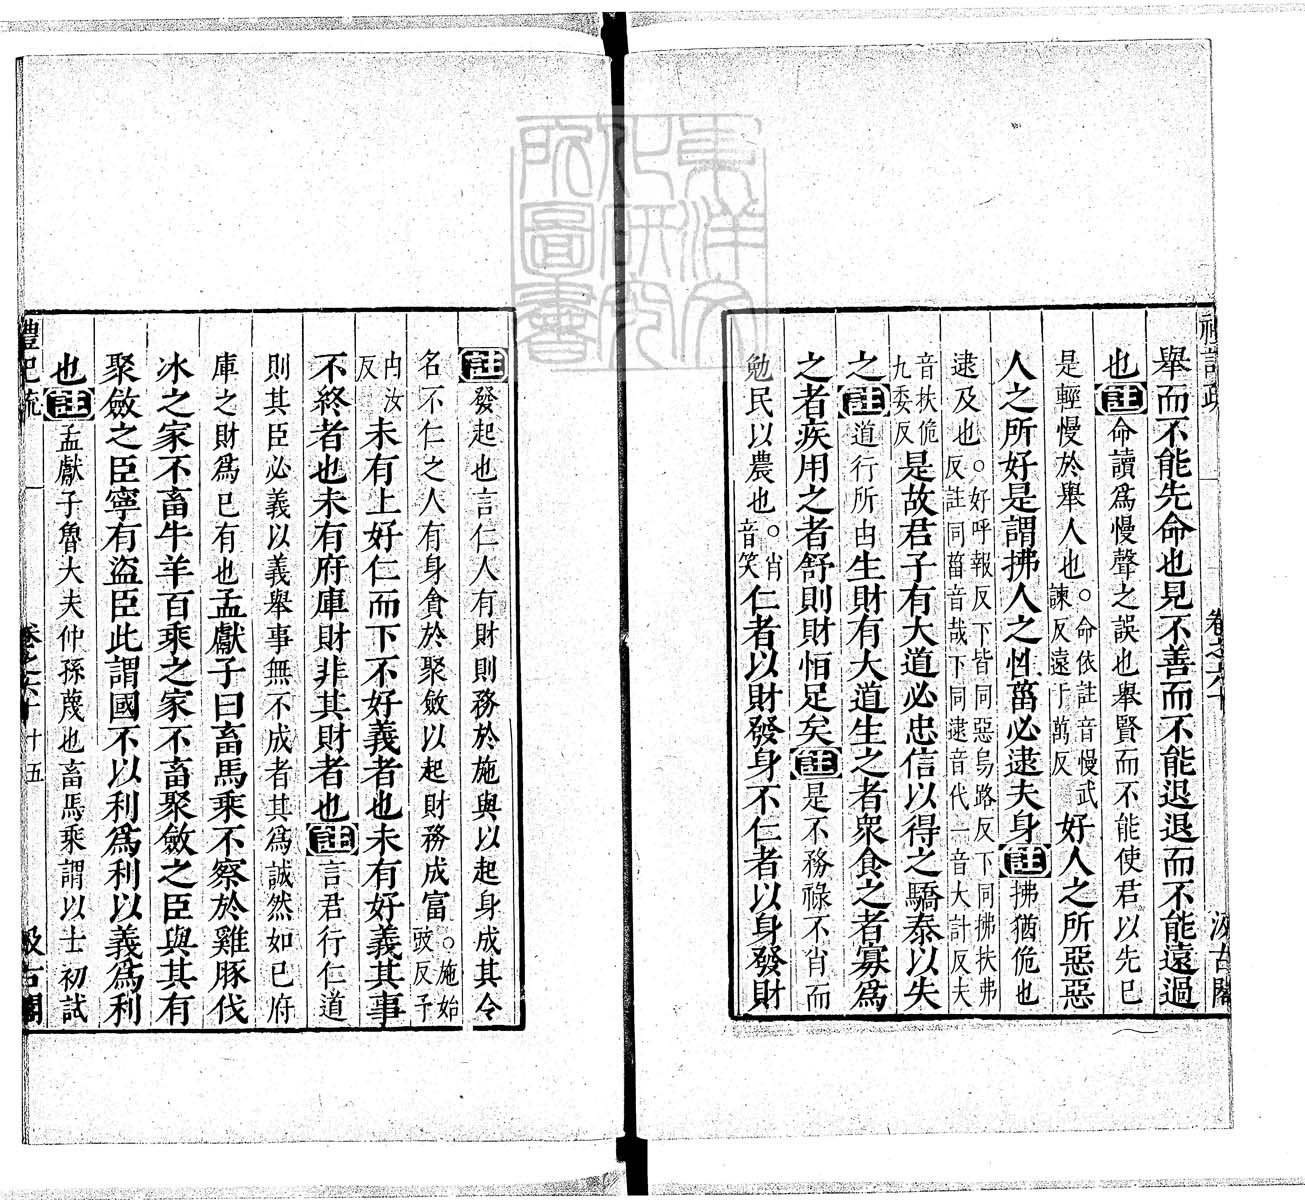 禮記疏 卷之六十 汲古閣
舉而不能先命也見不善而不能退退而不能遠過
也註命讀爲慢聲之誤也舉賢而不能使君以先己
是輕慢於舉人也○命依註音慢武諫反遠于萬反好人之所惡惡
人之所好是謂拂人之性菑必逮夫身註拂猶佹也
逮及也○好呼報反下皆同惡烏路反下同拂扶弗反註同菑音哉下同逮音代一音大計反夫
音扶佹九委反是故君子有大道必忠信以得之驕泰以失
之註道行所由生財有大道生之者衆食之者寡爲
之者疾用之者舒則財恒足矣註是不務祿不肖而
勉民以農也○肖音笑仁者以財發身不仁者以身發財
註發起也言仁人有財則務於施與以起身成其令
名不仁之人有身貪於聚斂以起財務成富○施始豉反予
冉汝反未有上好仁而下不好義者也未有好義其事
不終者也未有府庫財非其財者也註言君行仁道
則其臣必義以義舉事無不成者其爲誠然如己府
庫之財爲己有也孟獻子曰畜馬乘不察於雞豚伐
冰之家不畜牛羊百乘之家不畜聚斂之臣與其有
聚斂之臣寧有盜臣此謂國不以利爲利以義爲利
也註孟獻子魯大夫仲孫蔑也畜馬乘謂以士初試
禮記疏 卷之六十 十五 汲古閣
東洋文
化研究
所圖書